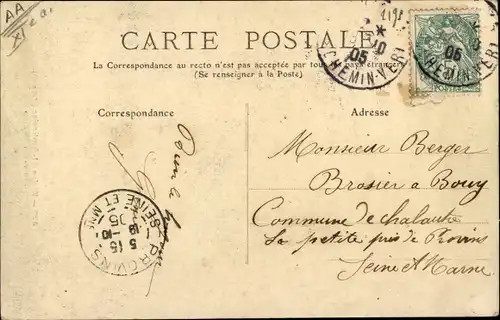 AA
CARTE POSTALE
La Correspondance au recto n'est pas acceptée par tous pays étrangers
(Se renseigner à la Poste)
05
CHEMIN-VERT
05
CHEMIN-VERT
Correspondance
Adresse
Monsieur Berger
Brasier a Bouy
Commune de chalautre
La petite près de Provins
Seine et Marne
PROVINS
5 15
18 -10
05
SEINE ET MNE